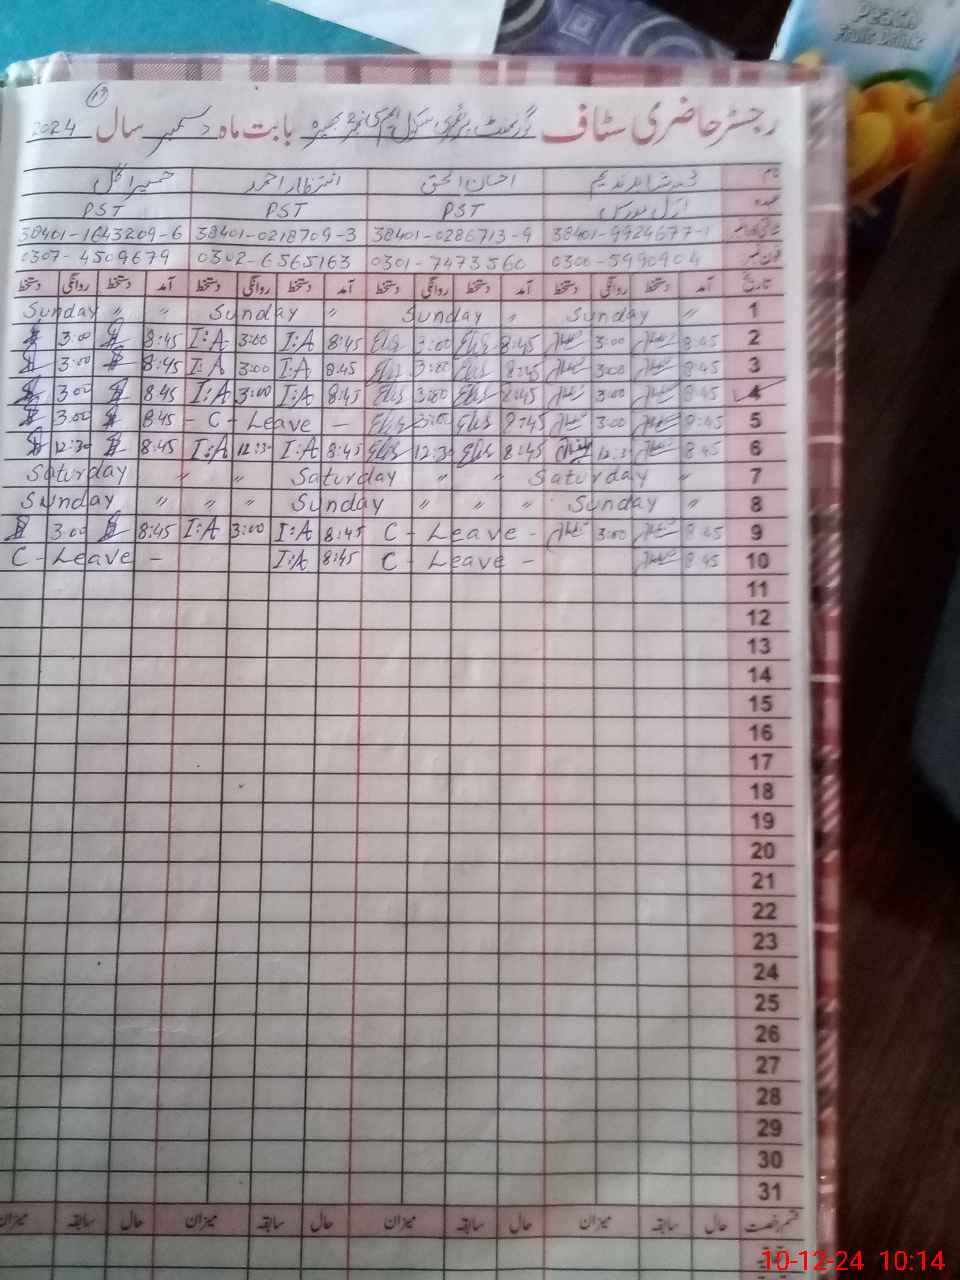 Peach
Fruit Drink
رجسٹر حاضری سٹاف گورنمنٹ پرائمری سکول ایم سی نمبر 2 بھیرہ بابت ماہ دسمبر سال 2024
نام احسان الحق انتظار احمد
عہدہ PST PST PST
38401-9924677-1 38401-0286713-9 38401-0218709-3 38401-1643209-6
فون نمبر 0300-5990904 0301-7473560 0302-6565163 0307-4509679
تاریخ آمد دستخط روانگی دستخط آمد دستخط روانگی دستخط آمد دستخط روانگی دستخط آمد دستخط روانگی دستخط
1 Sunday " Sunday " Sunday " Sunday " "
2 8:45 3:00 8:45 3:00 8:45 I:A 3:00 I:A 8:45 3:00
3 8:45 3:00 8:45 3:00 8:45 I:A 3:00 I:A 8:45 3:00
4 8:45 3:00 8:45 3:00 8:45 I:A 3:00 I:A 8:45 3:00
5 8:45 3:00 8:45 3:00 - C - Leave - 8:45 3:00
6 8:45 12:30 8:45 12:30 8:45 I:A 12:30 I:A 8:45 12:30
7 Saturday " Saturday " " Saturday
8 Sunday " " Sunday " " " Sunday
9 8:45 3:00 C - Leave - 8:45 I:A 3:00 I:A 8:45 3:00
10 8:45 C - Leave - 8:45 I:A C - Leave -
11
12
13
14
15
16
17
18
19
20
21
22
23
24
25
26
27
28
29
30
31
قسم رخصت حال سابقہ میزان حال سابقہ میزان حال سابقہ میزان حال سابقہ میزان
10-12-24 10:14